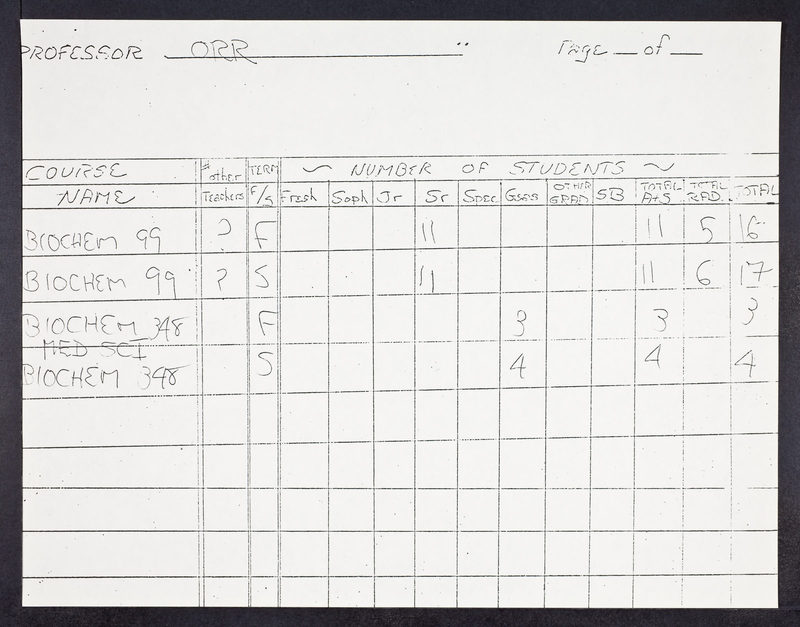 PROFESSOR ORR Page __ of __
COURSE # other TERM ~ NUMBER OF STUDENTS ~
NAME Teachers F/S Fresh Soph Jr Sr Spec GSAS OTHER GRAD SB TOTAL A+S TOTAL RAD. TOTAL
BIOCHEM 99 ? F 11 11 5 16
BIOCHEM 99 ? S 11 11 6 17
BIOCHEM 348 F 3 3 3
MED SCI
BIOCHEM 348 S 4 4 4